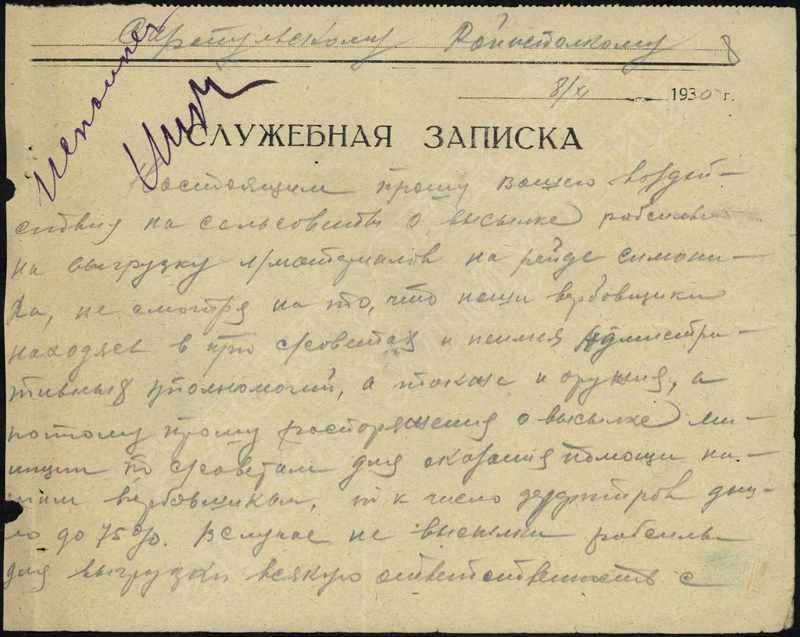 Сарапульскому Райисполкому
8
8/XI 1930 г.
исполнен
СЛУЖЕБНАЯ ЗАПИСКА
Настоящим прошу вашего воздей-
ствия на сельсоветы о высылке рабсилы
на выгрузку л/материалов на рейде Симони-
ха, не смотря на то, что наши вербовщики
находясь в с/советах и не имея административ-
тивных уполномочий, а также и оружия, а
потому прошу распоряжения о высылке ми-
лиции по с/советам для оказания помощи на-
шим вербовщикам, т к число дезертиров дош-
ло до 75%. В случае не высылки рабсилы
для выгрузки всякую ответственность с